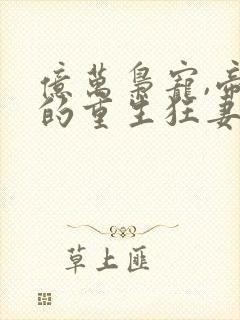 億萬梟寵,帝
的重生狂妻
草上匪